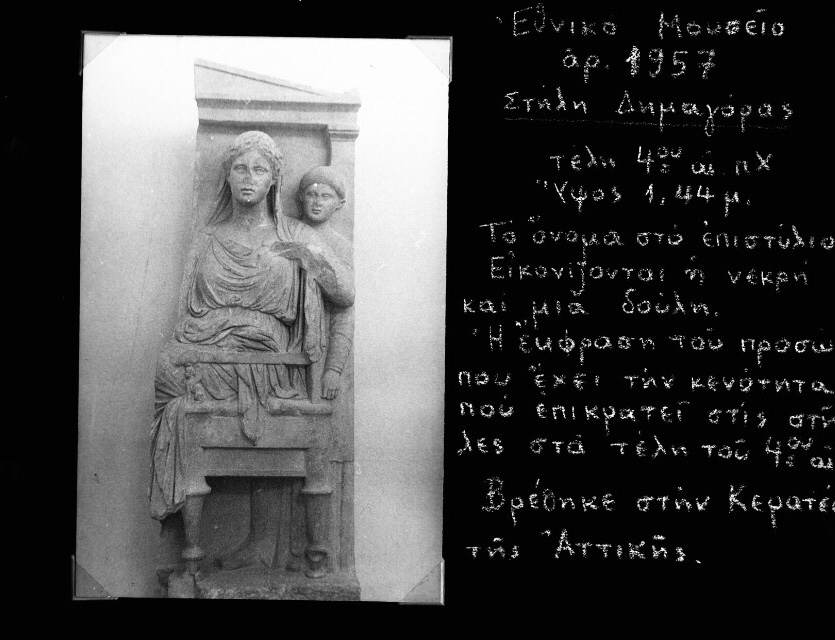 Ἐθνικο Μουσεῖο
ἀρ. 1957
Στήλη Δημαγόρας
τέλη 4ου αἰ. πΧ
Ὕψος 1,44 μ.
Τό ὄνομα στό ἐπιστύλιο
Εἰκονίζονται ἡ νεκρή
καί μιά δούλη.
Ἡ ἔκφραση τοῦ προσώ
που ἔχει τήν κενότητα
πού ἐπικρατεῖ στίς στή
λες στά τέλη τοῦ 4ου αἰ
Βρέθηκε στήν Κερατέα
τῆς Ἀττικῆς.